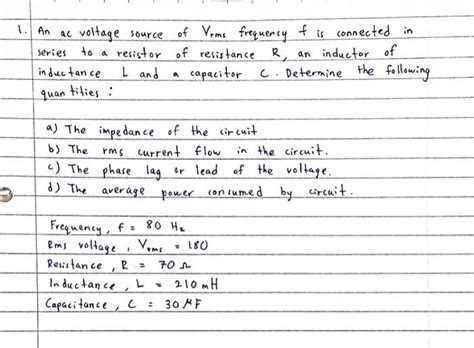 1. An ac voltage source of Vrms frequency f is connected in
series to a resistor of resistance R, an inductor of
inductance L and a capacitor C. Determine the following
quantities :
a) The impedance of the circuit
b) The rms current flow in the circuit.
c) The phase lag or lead of the voltage.
d) The average power consumed by circuit.
Frequency, f = 80 Hz
Rms voltage, Vrms = 180
Resistance, R = 70 Ω
Inductance, L = 210 mH
Capacitance, C = 30 μF